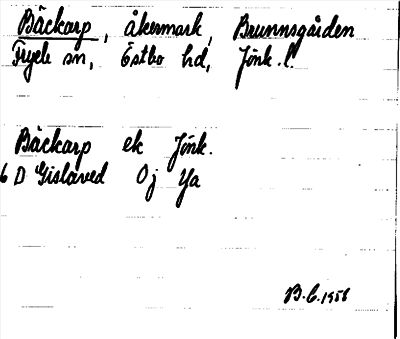 Bäckarp, åkermark, Brunnsgården
Fryele sn, Östbo hd, Jönk. l.
Bäckarp ek Jönk.
6 D Gislaved Oj Ya
B.C. 1956